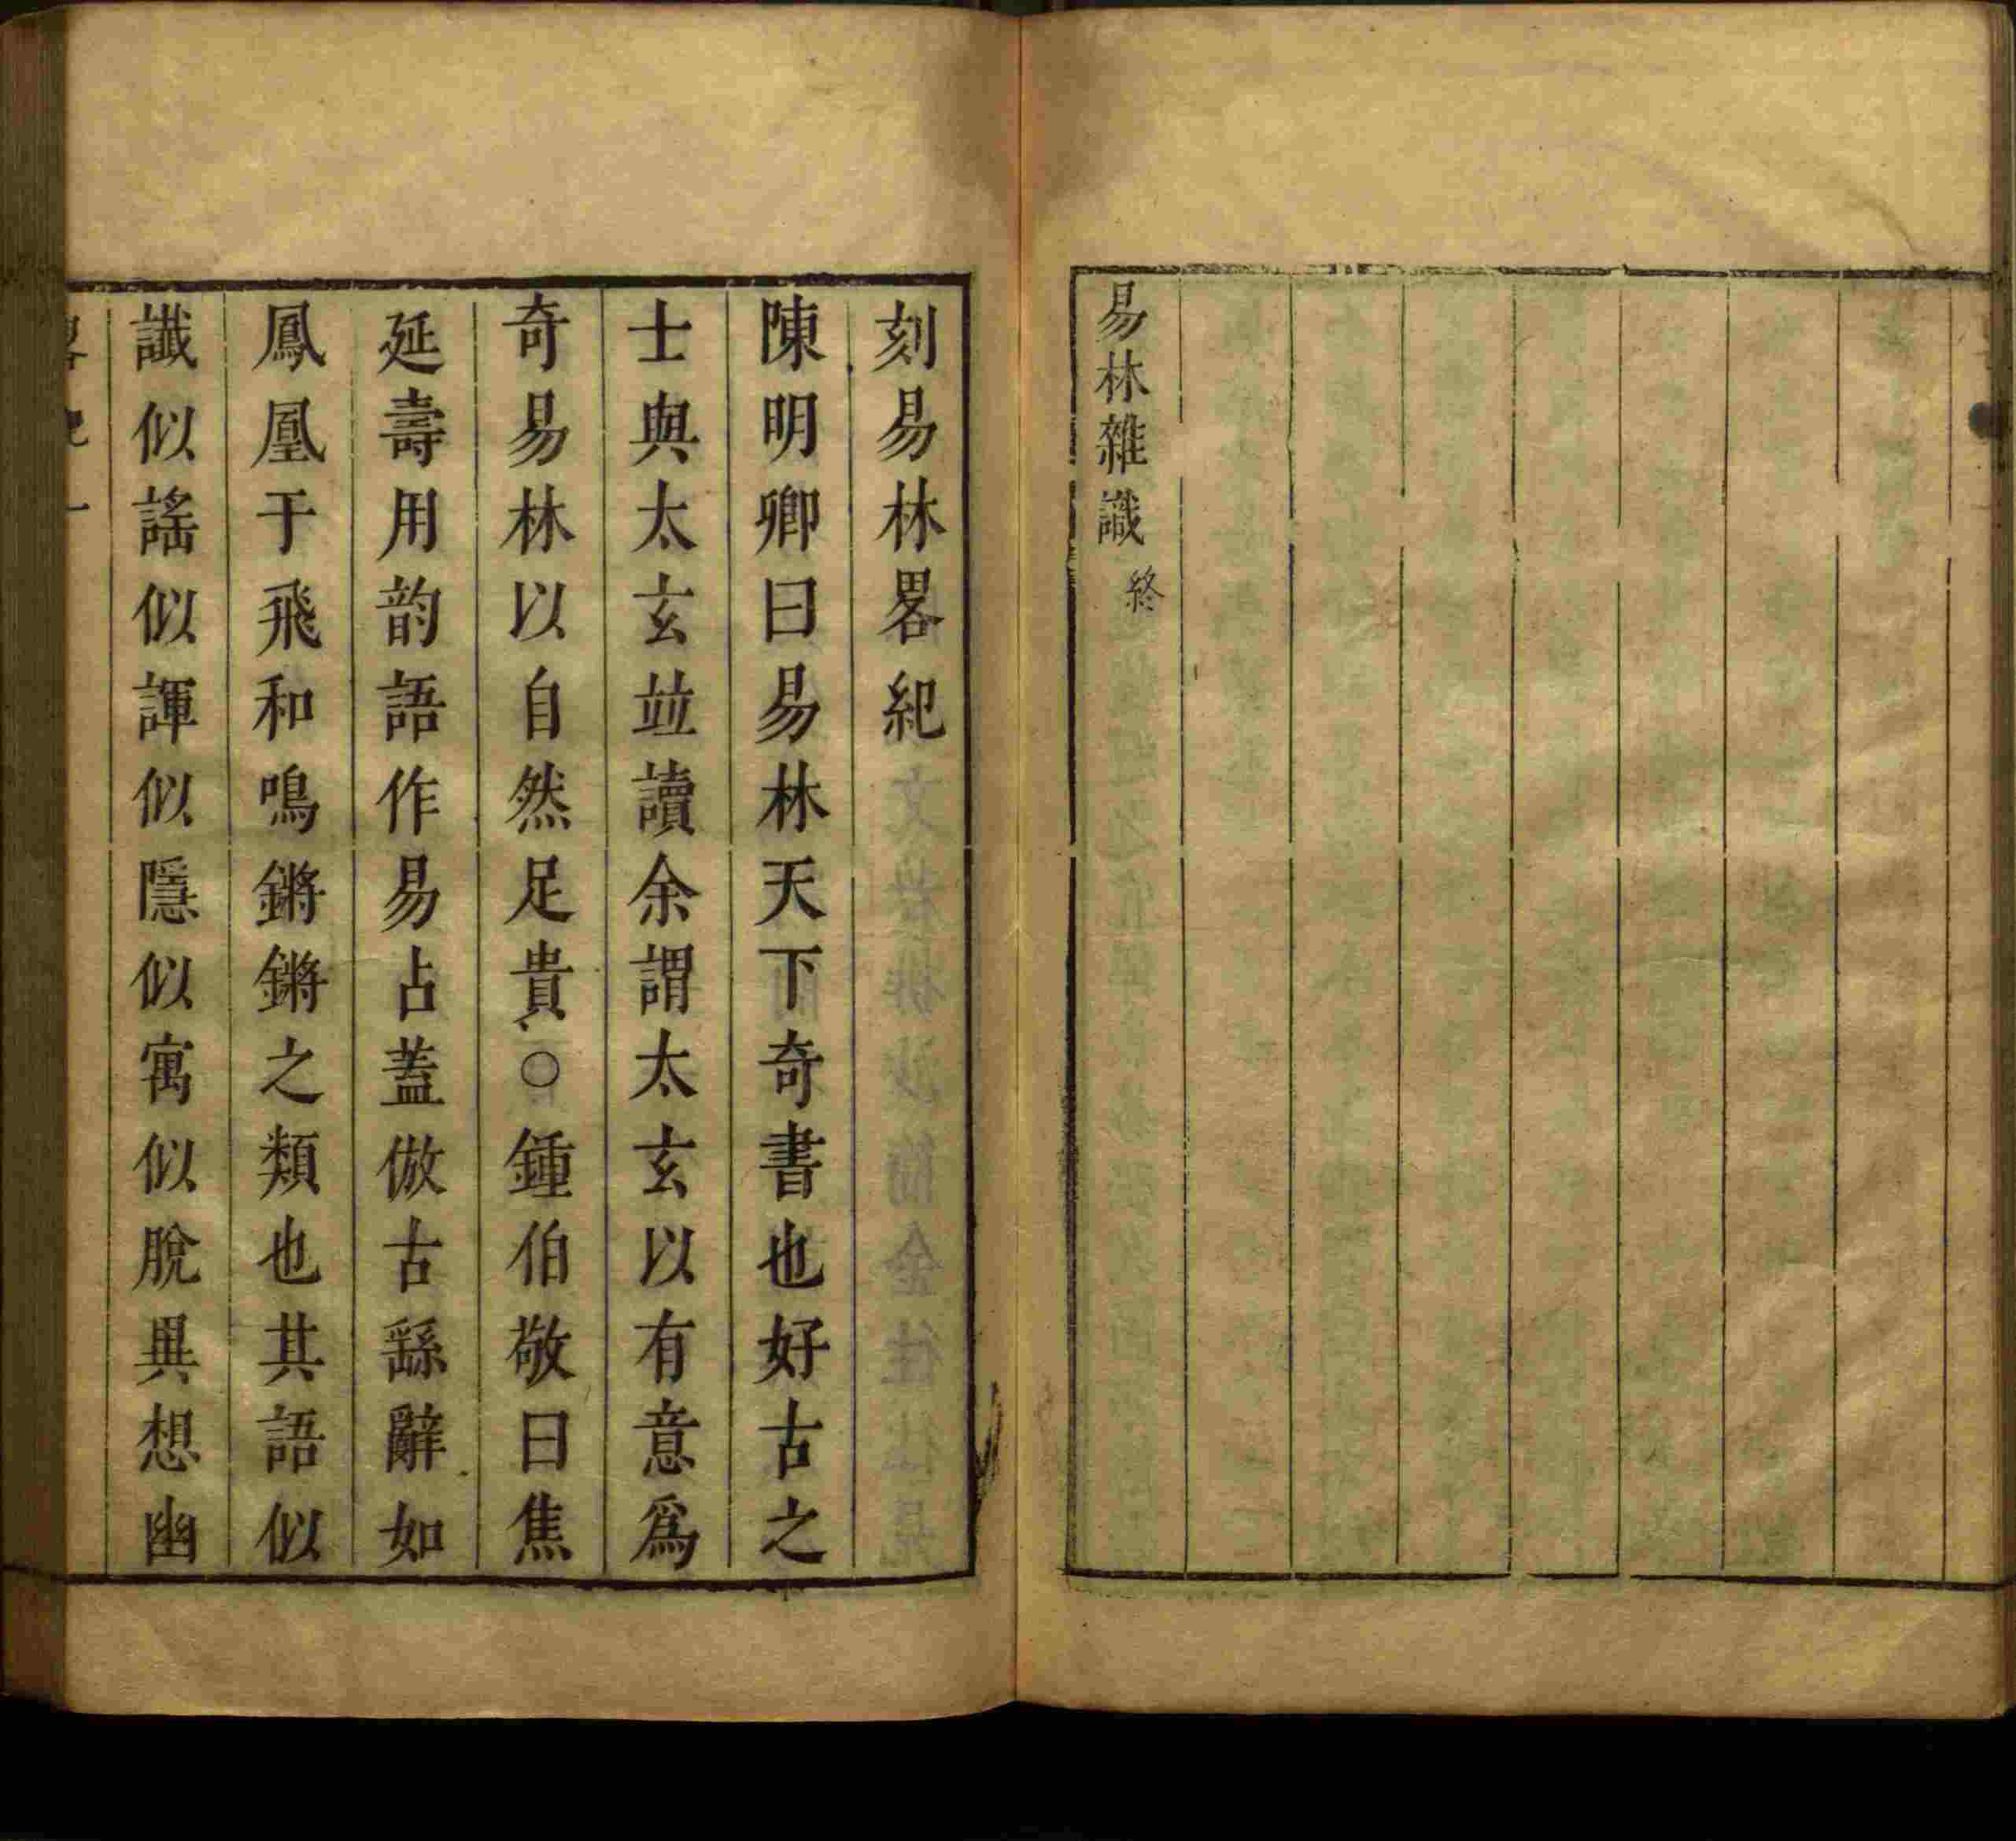 易林雜識終
刻易林畧紀
陳明卿曰易林天下奇書也好古之
士與太玄並讀余謂太玄以有意爲
奇易林以自然足貴○鍾伯敬曰焦
延壽用韵語作易占蓋倣古繇辭如
鳳凰于飛和鳴鏘鏘之類也其語似
讖似謠似諢似隱似寓似脫異想幽